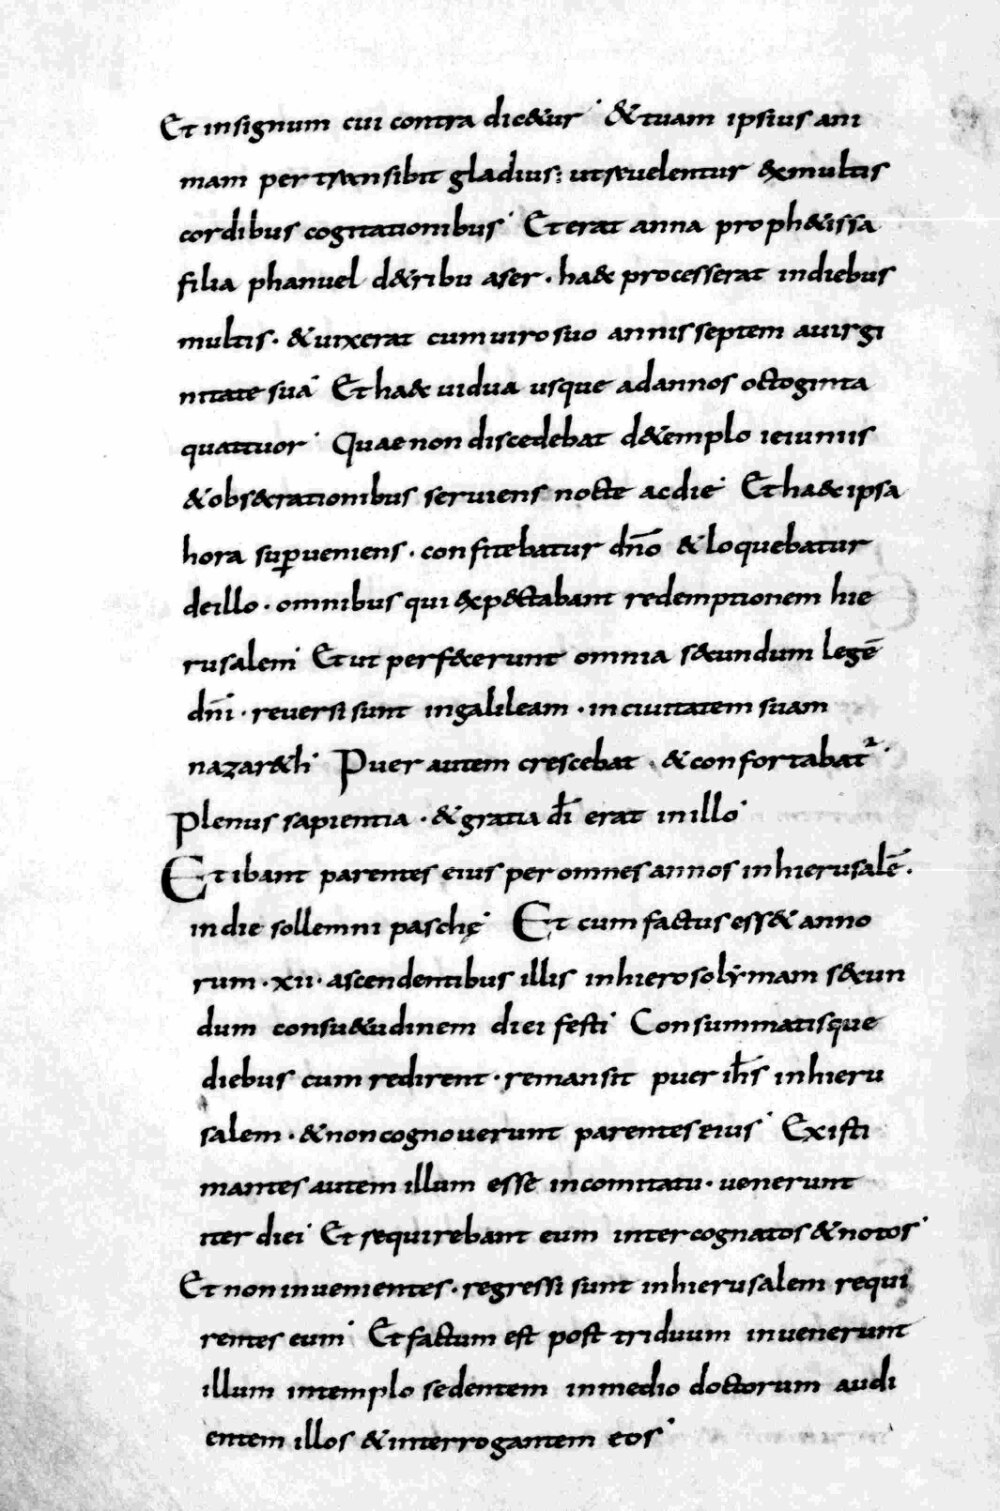 Et insignum cui contra dic&ur · &tuam ipsius ani
mam pertransibit gladius; utreuelentur exmultis
cordibus cogitationibus · Et erat anna proph&issa
filia phanuel d&ribu aser · ha& processerat indiebus
multis · &uixerat cumuirosuo annisseptem auirgi
nitate sua · Et ha& uidua usque adannos octoginta
quattuor · Quae non discedebat d&emplo ieiuniis
&obs&rationibus seruiens nocte acdie · Et ha& ipsa
hora sup̱ueniens · confitebatur dn̄o &loquebatur
deillo · omnibus qui exp&ctabant redemptionem hie
rusalem · Et ut perf&cerunt omnia s&cundum legē
dn̄i · reuersi sunt ingalileam · inciuitatem suam
nazar&h · Puer autem crescebat · &confortabat᷑ ·
Plenus sapientia · &gratia dī erat inillo ·
Et ibant parentes eius per omnes annos inhierusalē ·
indie sollemni paschę · Et cum factus ess& anno
rum · xii · ascendentibus illis inhierosolẏmam s&cun
dum consu&udinem diei festi · Consummatisque
diebus cum redirent · remansit puer ih̄s inhieru
salem · &noncognouerunt parentes eius · Existi
mantes autem illum esse incomitatu · uenerunt
iter diei · Et requirebant eum inter cognatos &notos ·
Et non inuenientes · regressi sunt inhierusalem requi
rentes eum · Et factum est post triduum inuenerunt
illum intemplo sedentem inmedio doctorum audi
entem illos &interrogantem eos ·